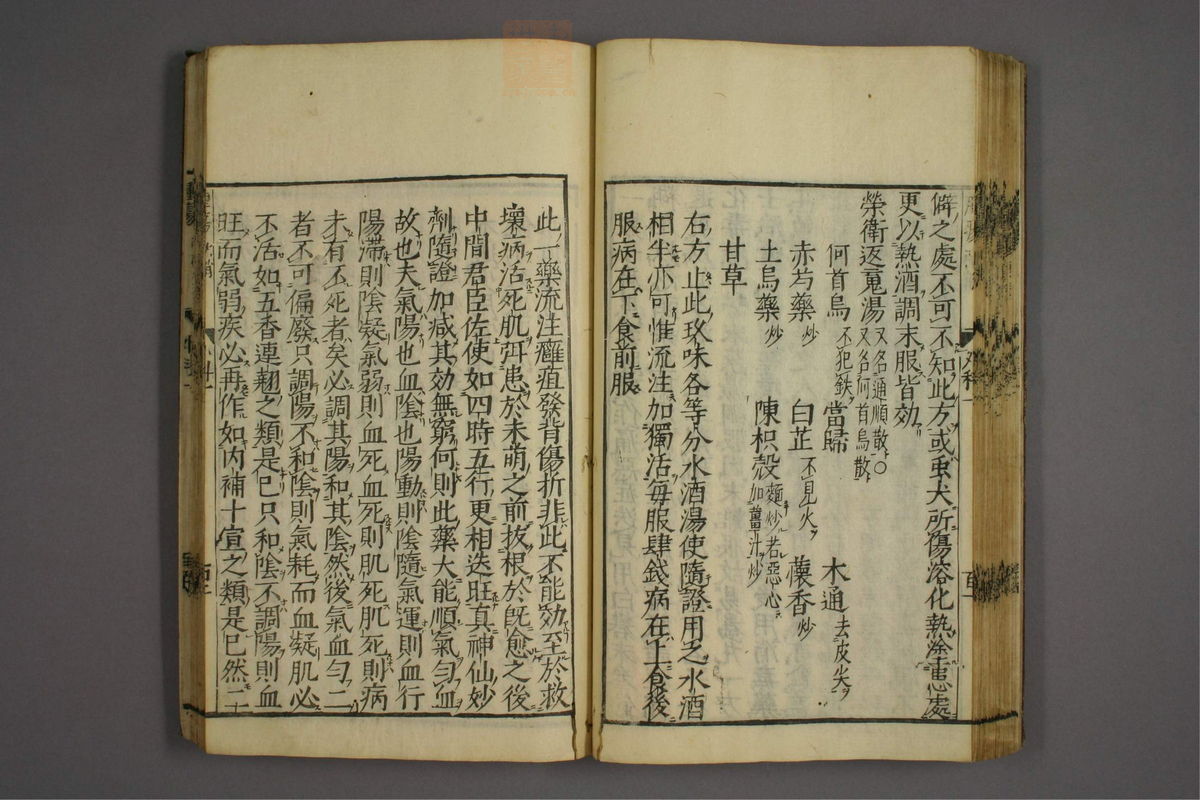 僻之處不可不知此方或虫犬所傷溶化熱塗患處
更以熱酒調末服皆効
榮衛返䰟湯 又名通順散○
又名何首烏散
何首烏 不犯鉄 當歸 木通 去皮尖
赤芍藥 炒 白芷 不見火 懷香 炒
土烏藥 炒 陳枳殼 麵炒若惡心
加薑汁炒
甘草
右方止此玖味各等分水酒湯使隨證用之水酒
相半亦可惟流注加獨活每服肆錢病在上食後
服病在下食前服
此一藥流注癰疽發背傷折非此不能効至於救
壞病活死肌弭患於未萌之前拔根於既愈之後
中間君臣佐使如四時五行更相迭旺真神仙妙
劑隨證加减其効無窮何則此藥大能順氣勻血
故也夫氣陽也血陰也陽動則陰隨氣運則血行
陽滯則陰凝氣弱則血死血死則肌死肌死則病
未有不死者矣必調其陽和其陰然後氣血勻二
者不可偏廢只調陽不和陰則氣耗而血凝肌必
不活如五香連翹之類是巳只和陰不調陽則血
旺而氣弱疾必再作如内補十宣之類是巳然二